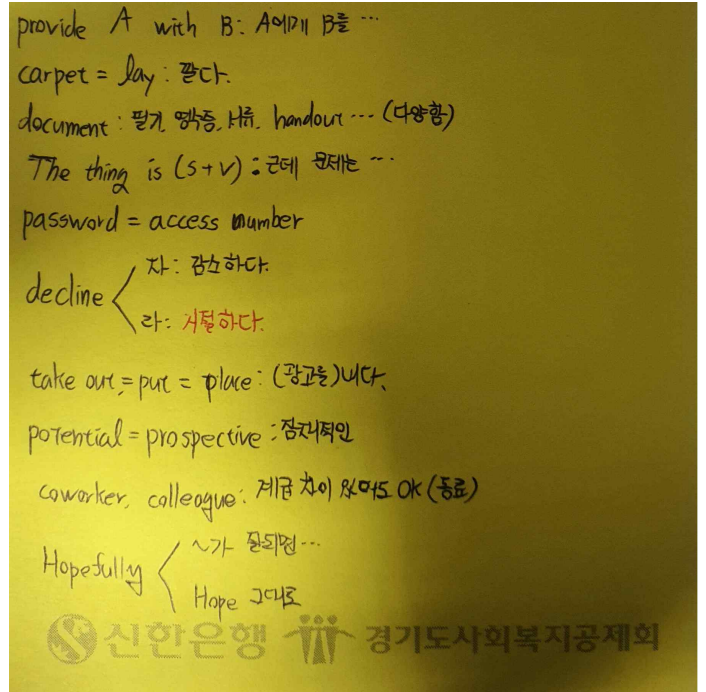 provide A with B: A에게 B를 ...
carpet = lay : 깔다.
document : 필기, 영수증, 서류, handout ... (다양함)
The thing is (s+v) : 근데 문제는 ...
password = access number
decline
자: 감소하다.
라: 거절하다.
take out = put = place : (광고를)내다.
potential = prospective : 잠재적인
coworker, colleague : 계급 차이 있어도 OK (동료)
Hopefully
~가 잘되면 ...
Hope 그대로
신한은행 경기도사회복지공제회